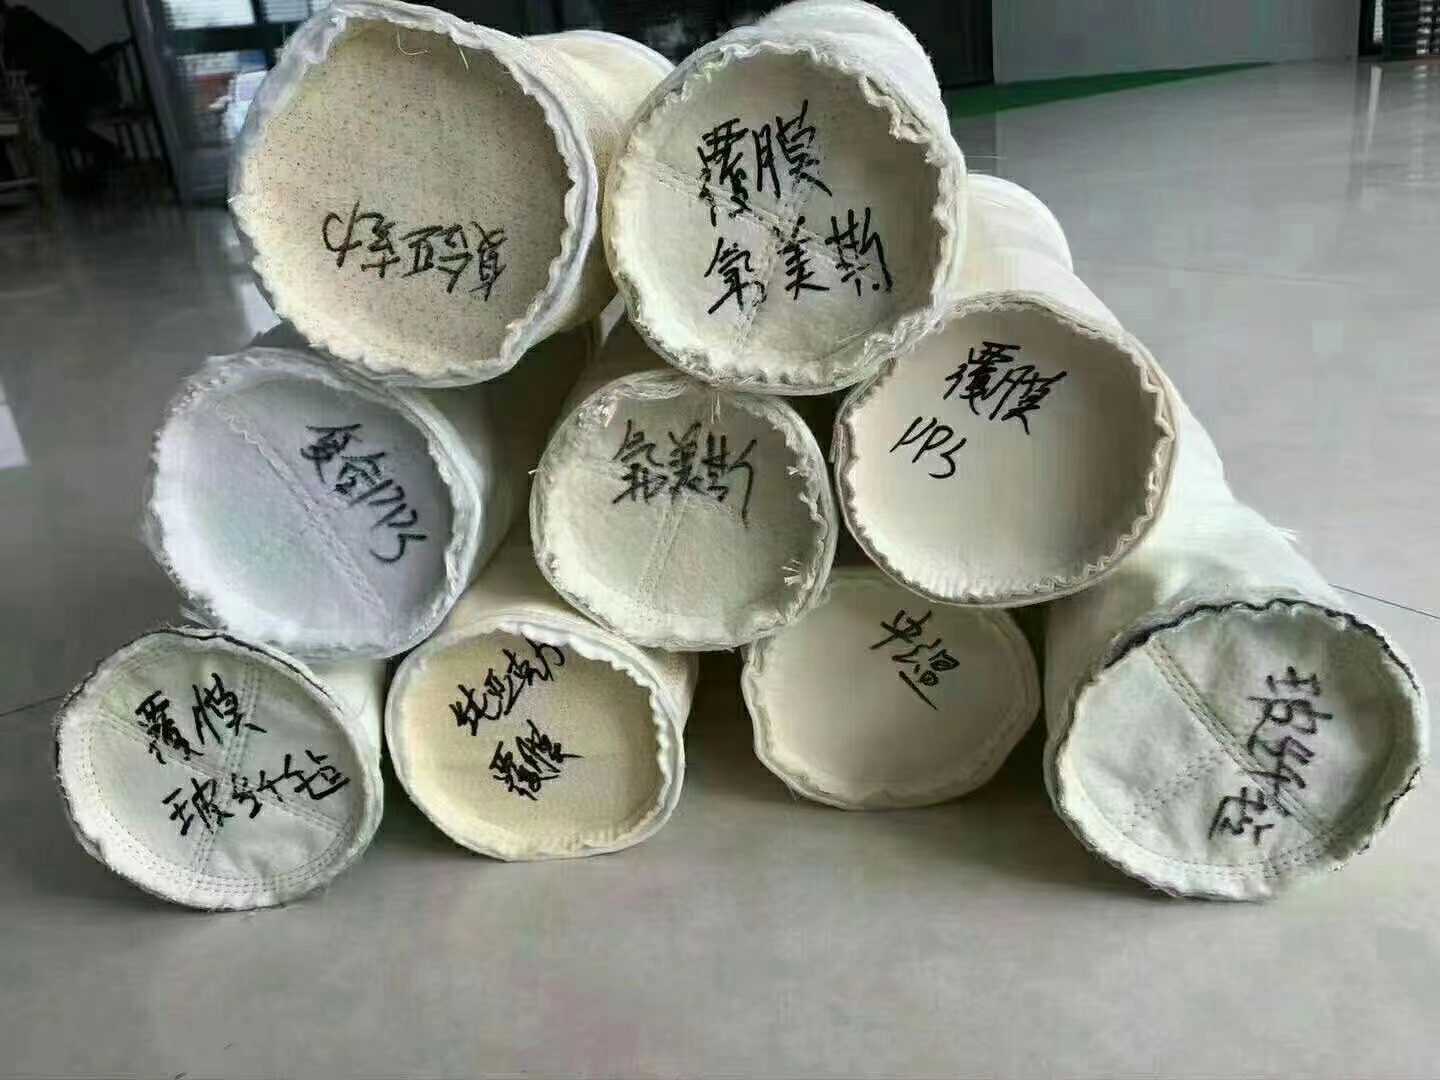 复合亚克力
覆膜
氟美斯
复合PPS
氟美斯
覆膜
PPS
覆膜
玻纤毡
纯亚克力
覆膜
中温
玻纤毡